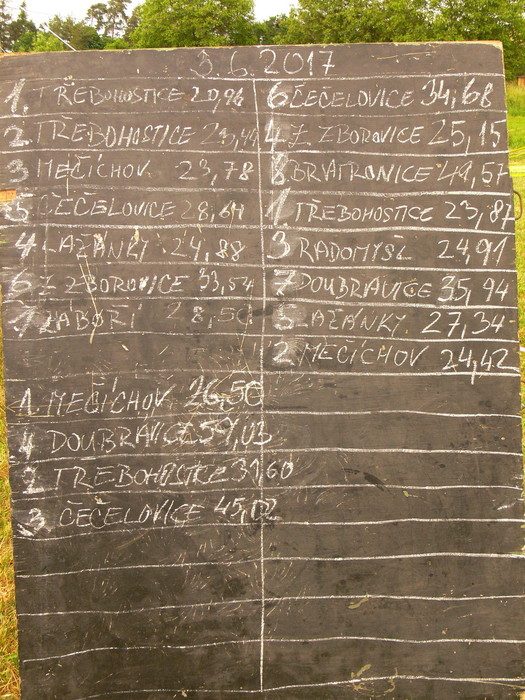 3.6.2017
1. TŘEBOHOSTICE 20,96
2 TŘEBOHOSTICE 23,44
3 MEČÍCHOV 23,78
5 ČEČELOVICE 28,64
4 LAŽÁNKY 24,88
6 Z ZBOROVICE 33,54
ZÁBOŘÍ 28,50
1 MEČÍCHOV 26,50
4 DOUBRAVICE 59,03
2 TŘEBOHOSTICE 31,60
3 ČEČELOVICE 45,02
6 ČEČELOVICE 34,68
4 Z. ZBOROVICE 25,15
8 BRATRONICE 49,57
1 TŘEBOHOSTICE 23,87
3 RADOMYŠL 24,91
7 DOUBRAVICE 35,94
5 LAŽÁNKY 27,34
2 MEČÍCHOV 24,42